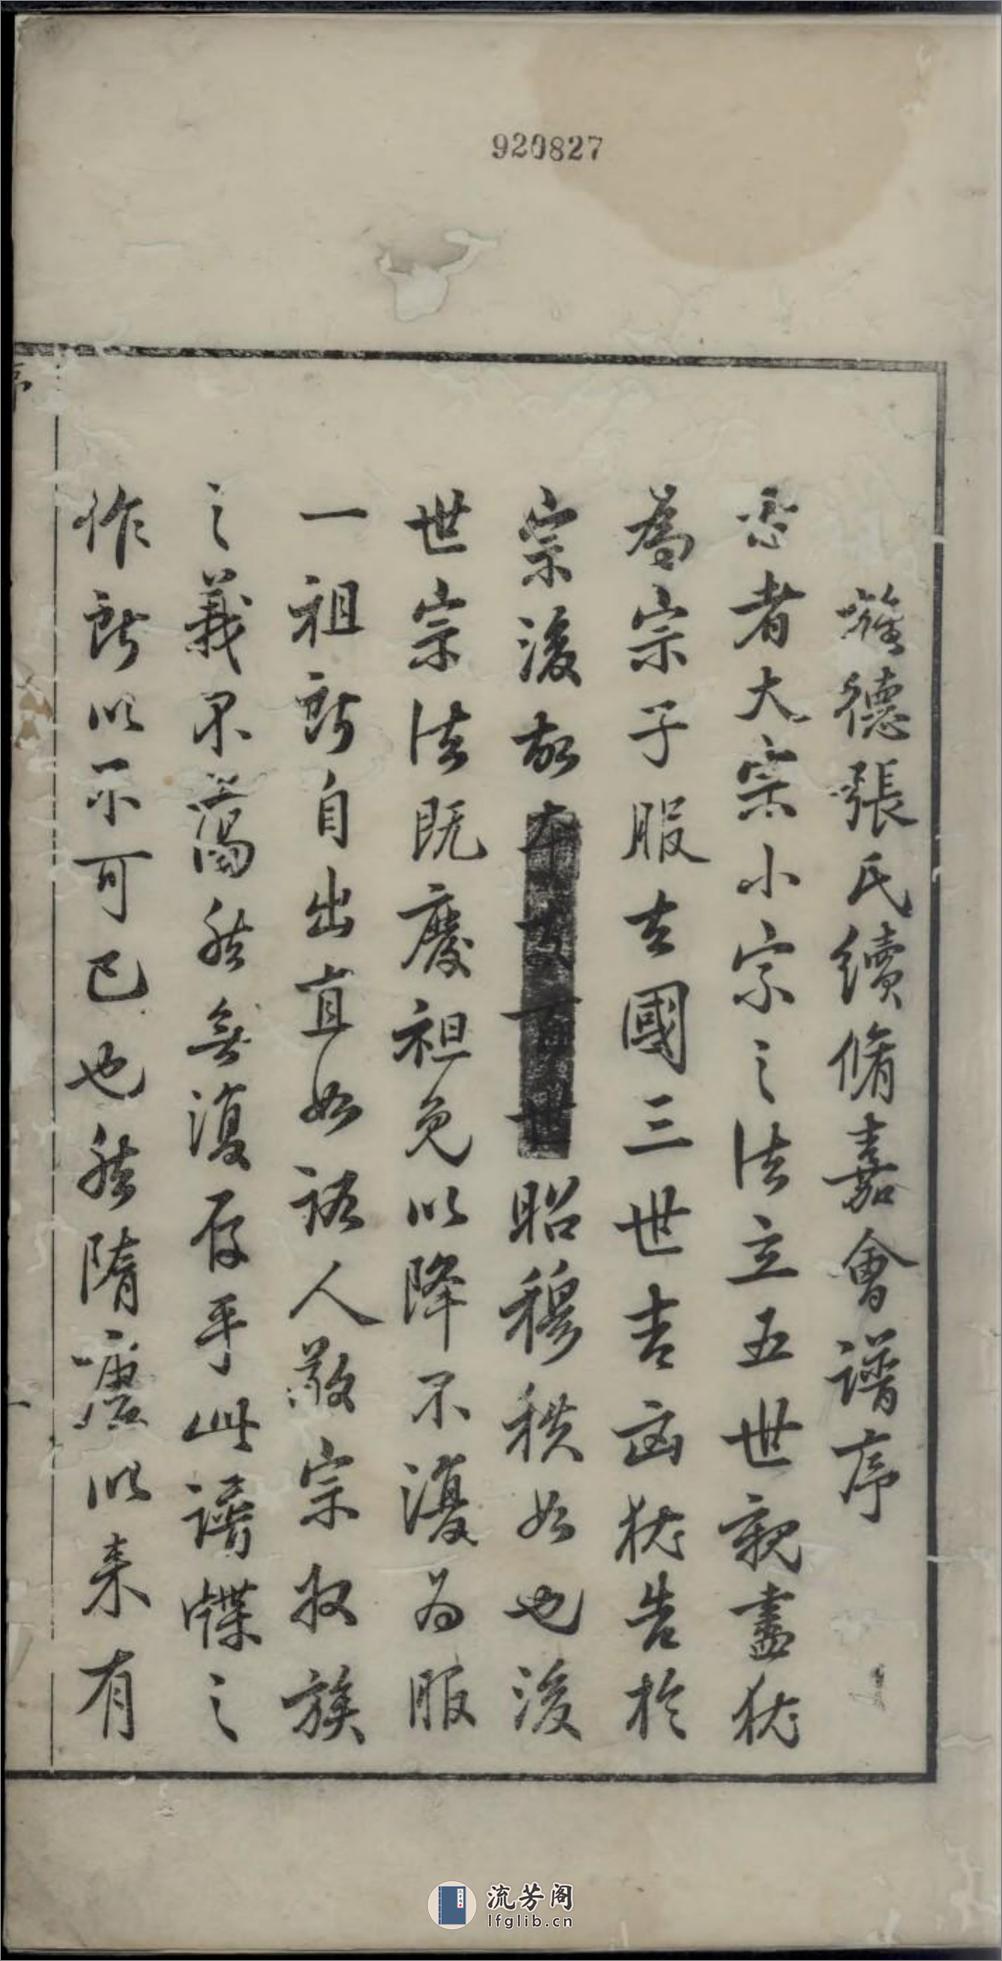 920827
旌德張氏續脩嘉會譜序
古者大宗小宗之法立五世親盡猶
為宗子服去國三世吉凶猶告於
宗後故本支百世昭穆秩如也後
世宗法既廢袒免以降不復為服
一祖所自出直如路人敬宗收族
之義不蕩然無復存乎此譜牒之
作所以不可已也然隋唐以來有
序
一
流芳阁
lfglib.cn